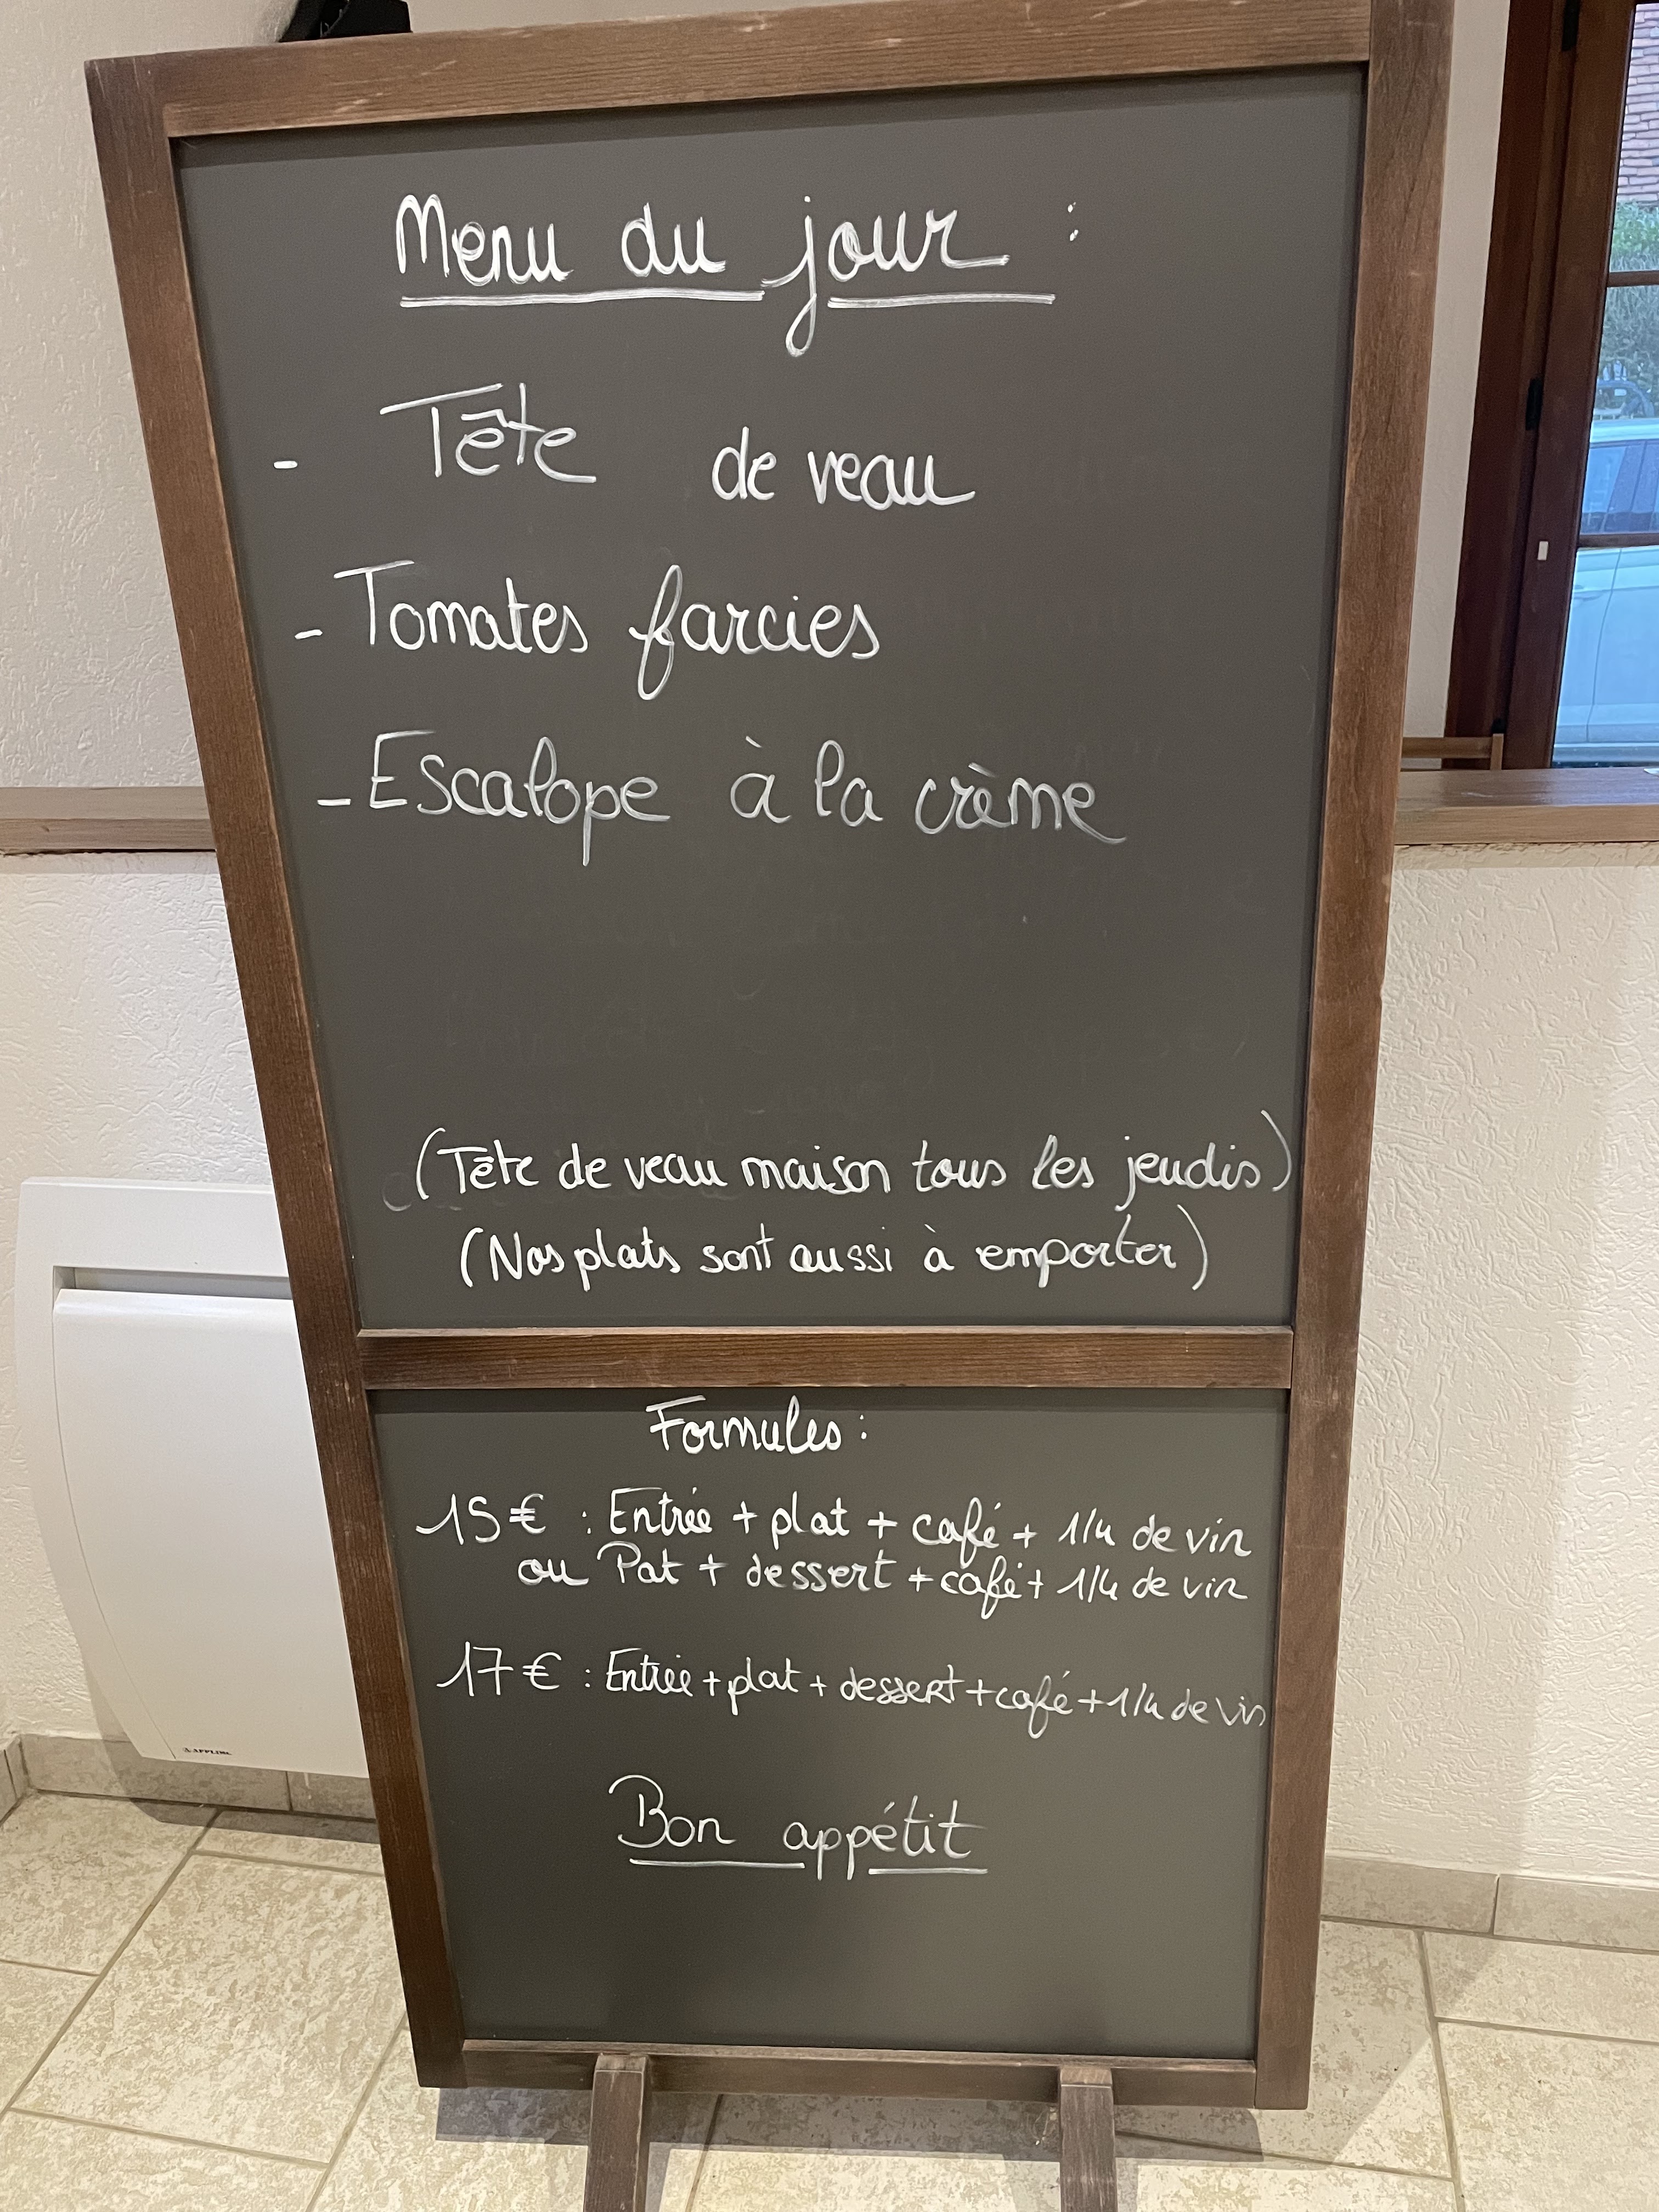 Menu du jour :
- Tête de veau
- Tomates farcies
- Escalope à la crème
(Tête de veau maison tous les jeudis)
(Nos plats sont aussi à emporter)
Formules :
15€ : Entrée + plat + café + 1/4 de vin
ou Pat + dessert + café + 1/4 de vin
17€ : Entrée + plat + dessert + café + 1/4 de vin
Bon appétit